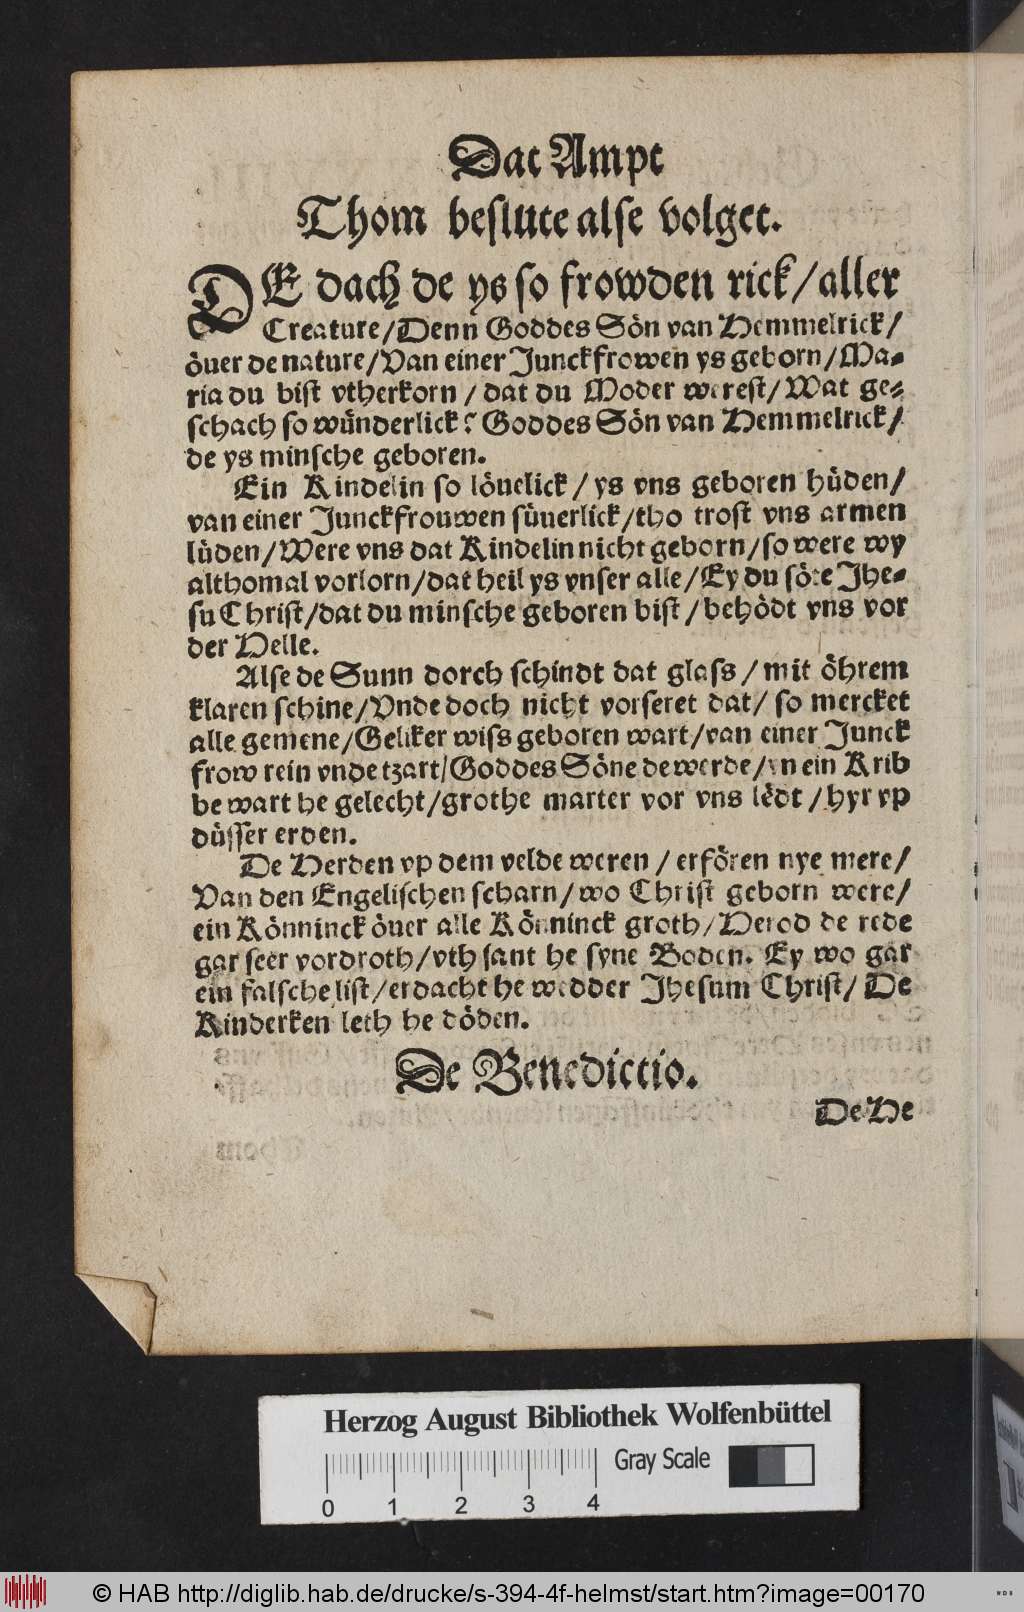 Dat Ampt
Thom beslute alse volget.
DE dach de ys so frowden rick/aller
Creature/Denn Goddes Sön van Hemmelrick/
öuer de nature/Van einer Junckfrowen ys geborn/Ma-
ria du bist vtherkorn/dat du Moder werest/Wat ge-
schach so wünderlick? Goddes Sön van Hemmelrick/
de ys minsche geboren.
Ein Kindelin so löuelick/ys vns geboren hüden/
van einer Junckfrouwen süuerlick/tho trost vns armen
lüden/Were vns dat Kindelin nicht geborn/so were wy
althomal vorlorn/dat heil ys vnser alle/Ey du söte Jhe-
su Christ/dat du minsche geboren bist/behödt vns vor
der Helle.
Alse de Sunn dorch schindt dat glass/mit öhrem
klaren schine/Vnde doch nicht vorseret dat/so mercket
alle gemene/Geliker wiss geboren wart/van einer Junck
frow rein vnde tzart/Goddes Söne de werde/yn ein Krib
be wart he gelecht/grothe marter vor vns lèdt/hyr vp
düsser erden.
De Herden vp dem velde weren/erfören nye mere/
Van den Engelischen scharn/wo Christ geborn were/
ein Könninck öuer alle Könninck groth/Herod de rede
gar seer vordroth/vth sant he syne Boden. Ey wo gar
ein falsche list/erdacht he wedder Jhesum Christ/De
Kinderken leth he döden.
De Benedictio.
De He
Herzog August Bibliothek Wolfenbüttel
Gray Scale
0 1 2 3 4
© HAB http://diglib.hab.de/drucke/s-394-4f-helmst/start.htm?image=00170